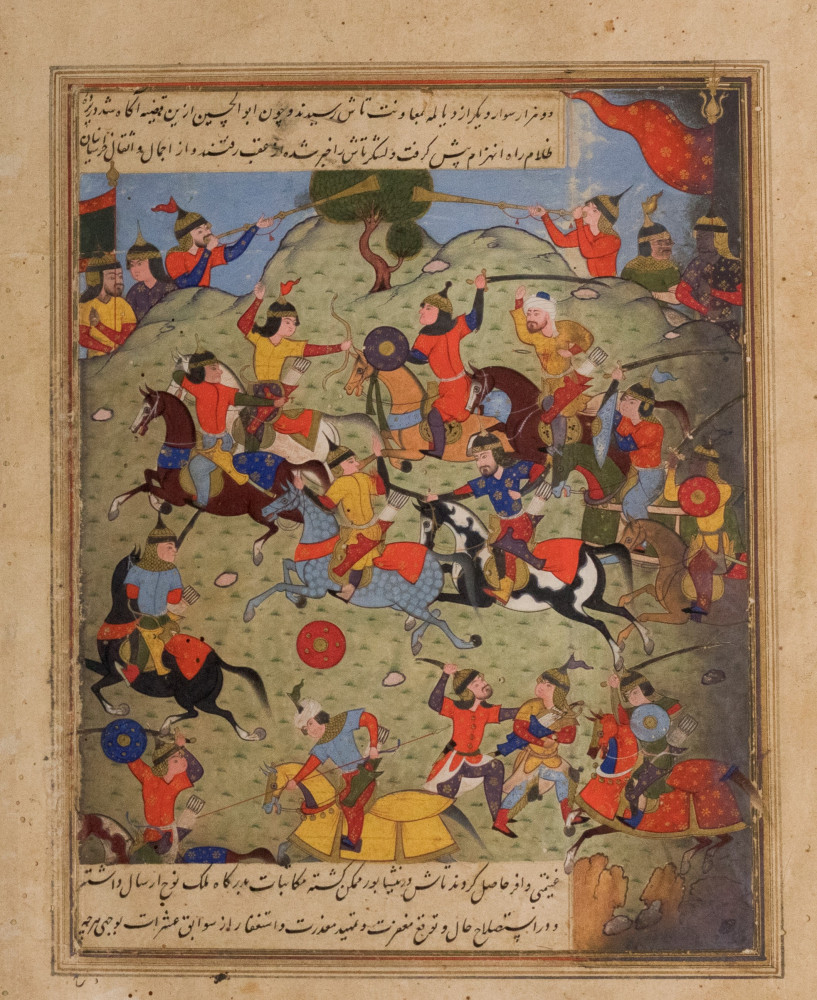 دو هزار سوار دیگر از دیالمه بمعاونت تاش رسیدند و چون ابوالحسین ازین قضیه آگاه شد در پرده
ظلام راه انهزام پیش گرفت و لشکر تاش را خبر شده از عقب رفتند و از احمال و اثقال خراسانیان
غنیمتی وافر حاصل کردند تاش در نیشابور ممکن گشته مکاتبات بدرگاه ملک نوح ارسال داشتی
و در استصلاح حال و توقع مغفرت و تمهید معذرت و استغفار از سوابق عثرات بوجهی هرچه